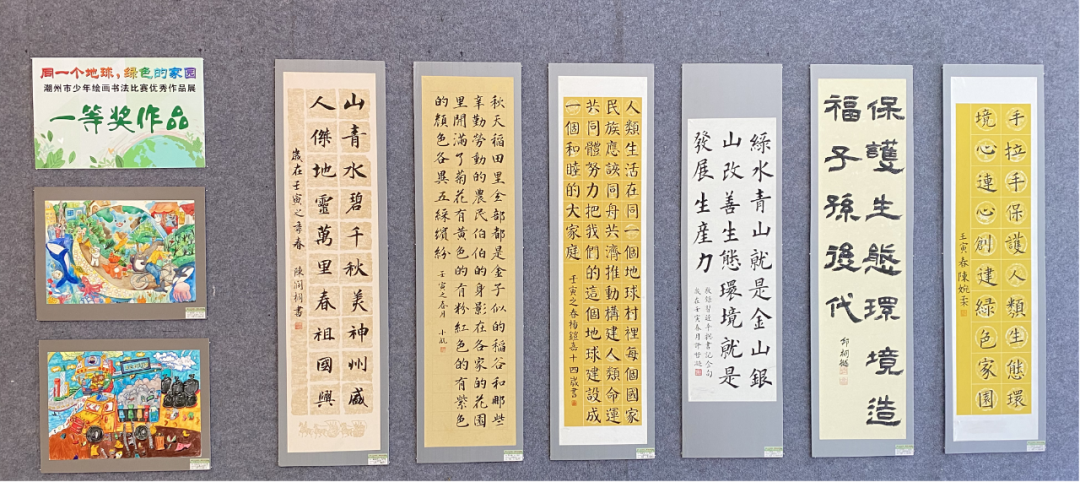 同一个地球,绿色的家园
潮州市少年绘画书法比赛优秀作品展
一等奖作品
山青水碧千秋美神州盛
人傑地靈萬里春祖國興
歲在壬寅之年春 陳
秋天稻田里全部都是金子似的稻谷和那些
辛勤勞動的農民伯伯的身影在各家的花園
里開滿了菊花有黃色的有粉紅色的有紫色
的顏色各異五綵繽紛 壬寅之春月 小航
人類生活在同一個地球村裡每個國家
民族應該同舟共濟推動構建人類命運
共同體努力把我們的這個地球建設成
一個和睦的大家庭 壬寅之春楊 十四歲書
綠水青山就是金山銀
山改善生態環境就是
發展生産力
敬錄習近平總書記金句
歲在壬寅春月許
保護生態環境造
福子孫後代
手拉手保護人類生態環
境心連心創建綠色家園
壬寅春陳婉